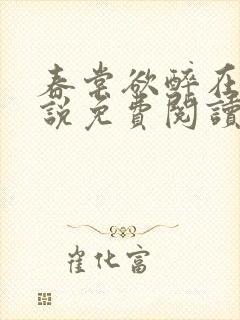 春裳欲醉在
說免費閱讀
崔化富